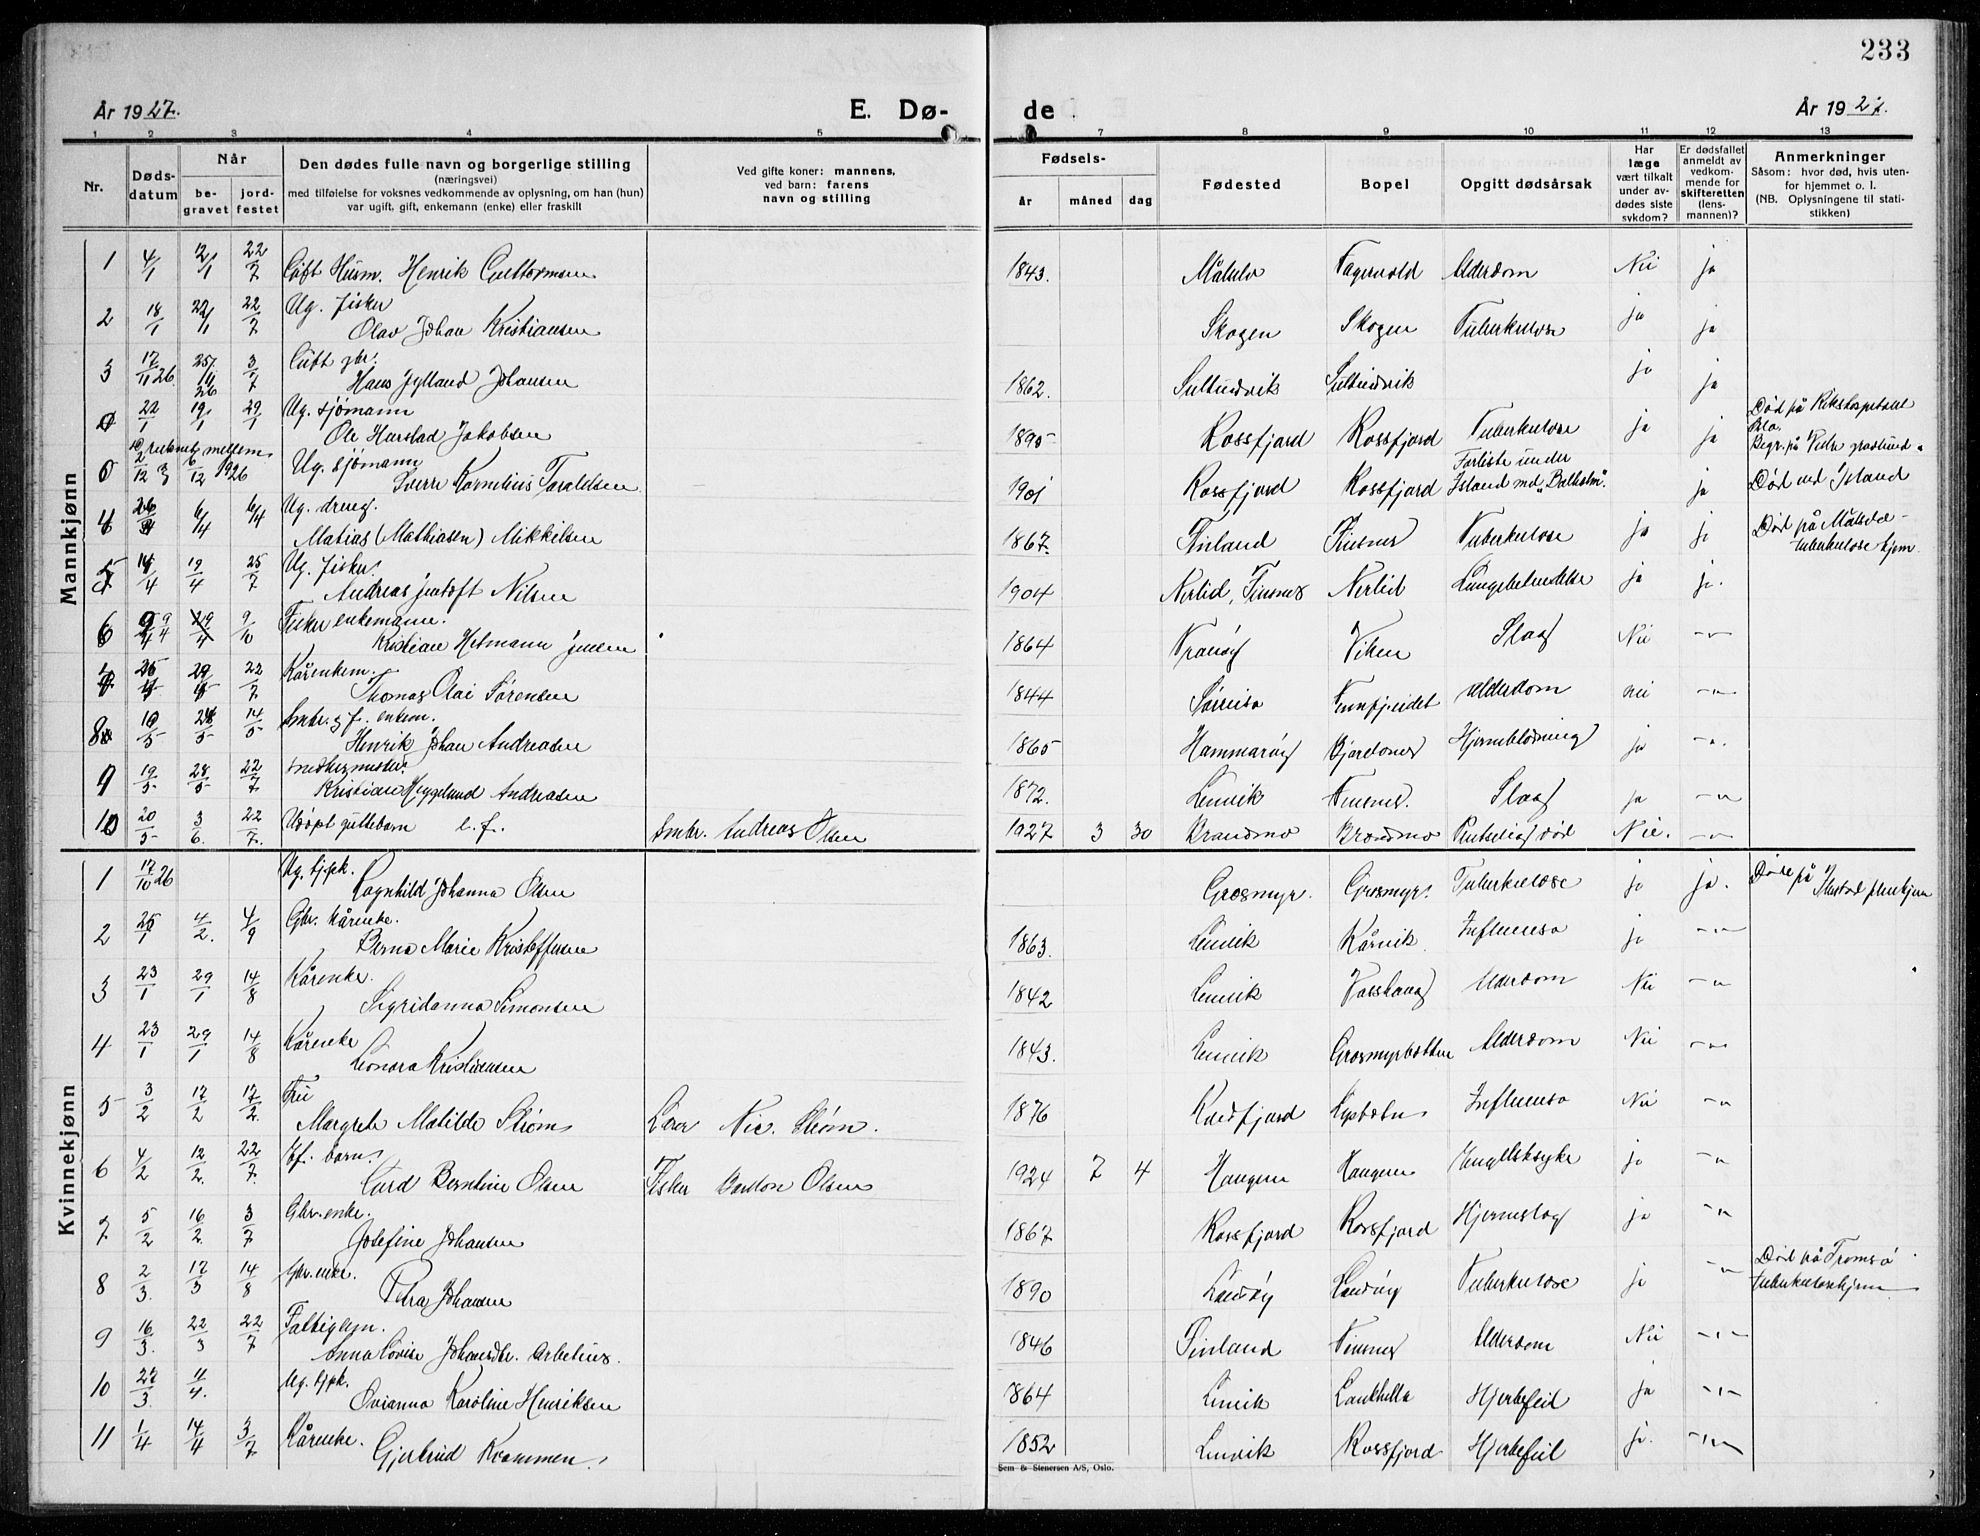 233
År 1927. E. Dø-
de År 1927.
1 2 3 4 5 7 8 9 10 11 12 13
Nr.
Døds-
datum
Når
be-
gravet
jord-
festet
Den dødes fulle navn og borgerlige stilling
(næringsvei)
med tilføielse for voksnes vedkommende av oplysning, om han (hun)
var ugift, gift, enkemann (enke) eller fraskilt
Ved gifte koner: mannens,
ved barn: farens
navn og stilling
Fødsels-
år måned dag
Fødested
Bopel
Opgitt dødsårsak
Har
læge
vært tilkalt
under av-
dødes siste
sykdom?
Er dødsfallet
anmeldt av
vedkom-
mende for
skifteretten
(lens-
mannen)?
Anmerkninger
Såsom: hvor død, hvis uten-
for hjemmet o. l.
(NB. Oplysningene til stati-
stikken)
Mannkjønn
1 4/1 12/1 22/7 Gift Husm. Henrik Guttormsen 1843. Målselv Fagervold Alderdom Nei ja
2 18/1 22/1 22/7 Ug. fisker
Olav Johan Kristiansen Skogen Skogen Tuberkulose ja ja
3 17/11 26 25/11 26 3/7 Gift gbr.
Hans Jylland Johansen 1862. Sultindvik Sultindvik ja ja
22/1 19/1 29/1 Ug. sjømann
Ole Harstad Jakobsen 1895 Rossfjord Rossfjord Tuberkulose ja ja Død på Rikshospitalet
Oslo.
Begr. på Vestre gravlund.
Druknet mellem
2/12 3 6/12 1926 Ug. sjømann
Sverre Kornelius Taraldsen 1901 Rossfjord Rossfjord Forliste under
Island med "Balholm". ja Død ved Island
4 26/3 6/4 6/4 Ug. dreng.
Matias (Mathiasen) Mikkelsen 1867. Finland Finsnes Tuberkulose ja ja Død på Målselv
tuberkulose hjem.
5 14/4 19/4 25/7 Ug. fisker.
Andreas Jentoft Nilsen 1904 Nerlid, Finsnes Nerlid Lungebetendelse ja ja.
6 9/4 9/10 Fisker enkemann.
Kristian Hetmann Jensen 1864 Tranøy Viken Slag Nei -"-
7 25/4 29/4 22/7 Kårenkem.
Thomas Olai Sørensen 1844 Sørreisa Finnfjeidet Alderdom nei -"-
8 10/5 24/5 14/5 Smbr. g f. enkem.
Henrik Johan Andreasen 1865 Hammarøy Gjordsnes Hjerneblødning ja -"-
9 19/5 28/5 22/7 Snedkermester.
Kristian Heggelund Andreasen 1872. Lenvik Finsnes. Slag ja -"-
10 20/5 3/6. 22/7. Udøpt guttebarn e. f. Smbr. Andreas Olsen 1927 3 30 Brandmo Brandmo Pludselig død Nei. -"-
Kvinnekjønn
1 17/10 26 Ug. tj.pk.
Ragnhild Johanna Olsen Grasmyr. Grasmyr. Tuberkulose ja ja. Døde på
Ilustad pleiehjem
2 25/1 4/2. 4/9 Gbr. kårenke.
Berna Marie Kristoffersen 1863. Lenvik Kårvik Influensa ja -"-
3 23/1 29/1 14/8 Kårenke.
Sigridanna Simonsen 1842 Lenvik Vasshaug Alderdom Nei -"-
4 23/1 29/1 14/8 Kårenke
Leonora Kristiansen 1843. Lenvik Grasmyrbotten Alderdom Nei -"-
5 3/2 17/2 17/2. Fru
Margrete Matilde Strøm Lærer Nic. Strøm. 1876 Kaldfjord Lysbotn Influensa Nei -"-
6 4/2 12/2. 22/7 Ef. barn.
Gurd Berntine Olsen Fisker Bardon Olsen 1924 7 4 Haugen Haugen Engelsksyke ja -"-
7 5/2 16/2. 3/7 Gbr.enke.
Josefine Johansen 1867 Rossfjord Rossfjord Hjerneslag ja -"-
8 2/3. 17/3 14/8 Gbr.enke.
Petra Johansen 1890 Sandøy Sandøy Tuberkulose ja -"- Død på Tromsø
tuberkulosehjem
9 16/3. 22/3 22/7 Fattiglem.
Anna Lovise Johansdtr. Arbelius. 1846 Finland Finsnes Alderdom Nei -"-
10 27/3. 11/4. Ug. tjpk.
Ovianna Karoline Henriksen 1864 Lenvik Lankhella Hjertefeil ja -"-
11 1/4 14/4 3/7 Kårenke.
Gjertrud Krammen. 1852 Lenvik Rossfjord Hjertefeil ja. -"-
Sem & Stenersen A/S, Oslo.